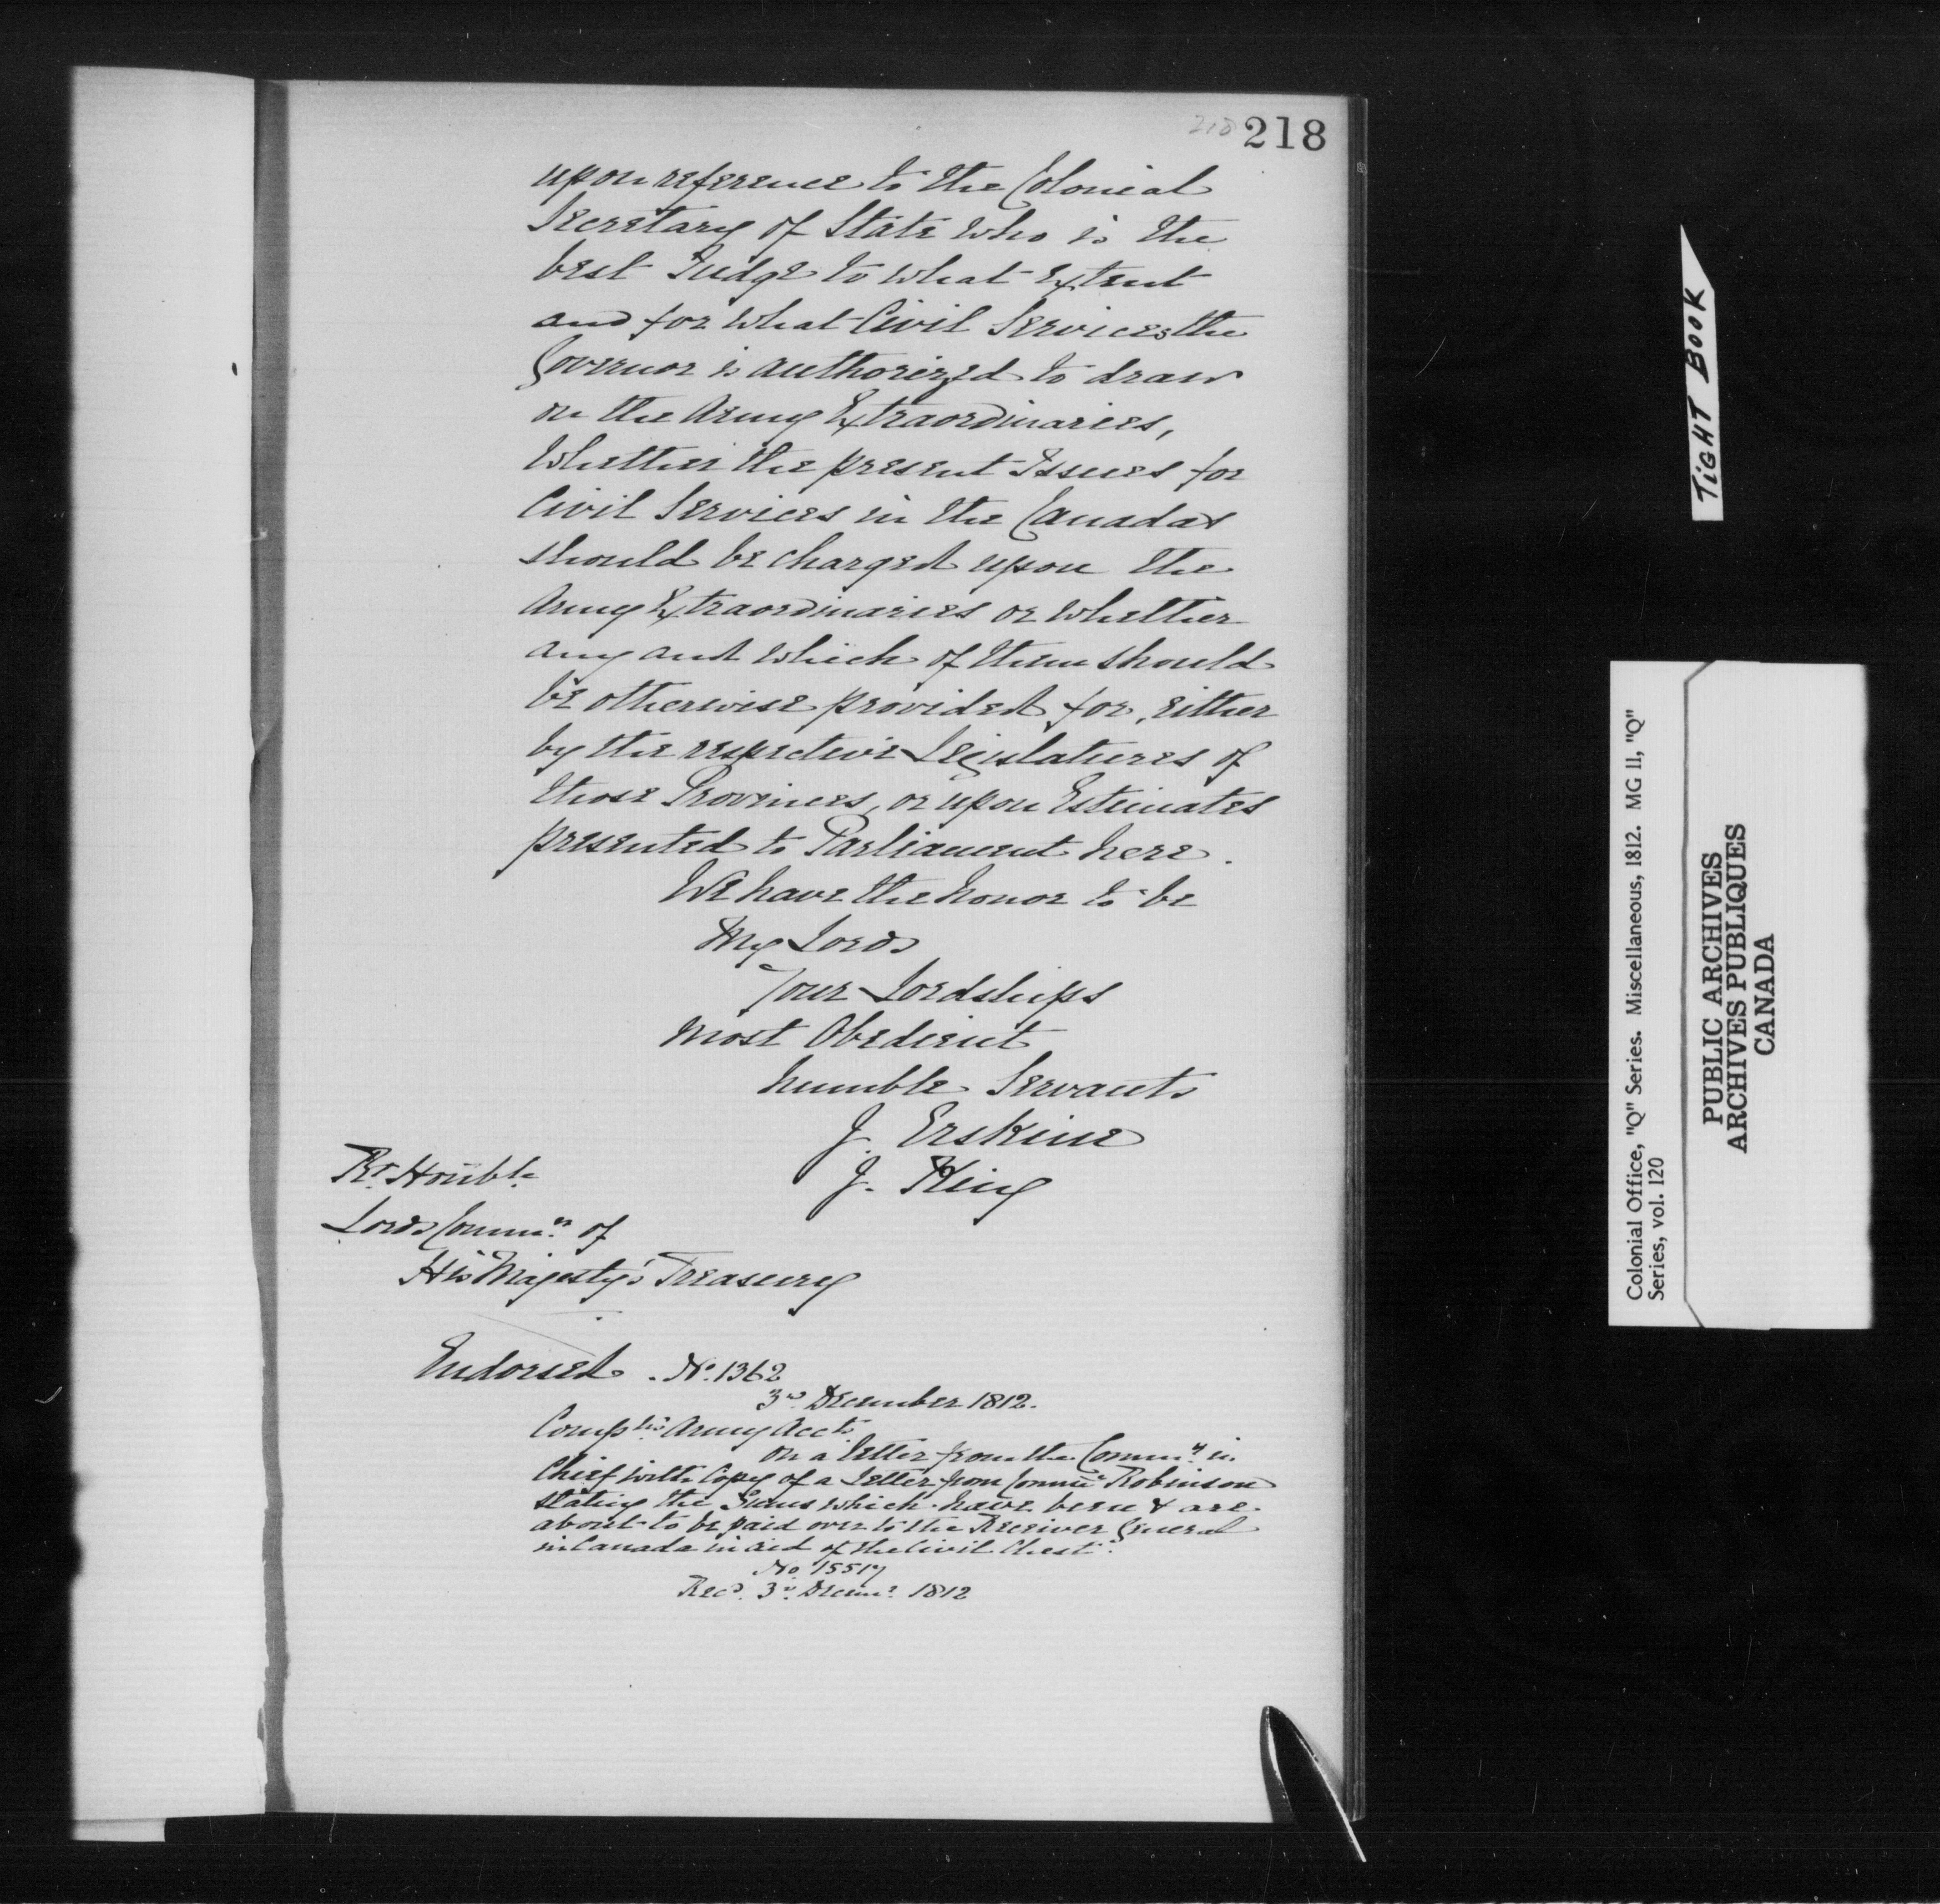 218 218
upon reference to the Colonial
Secretary of State who is the
best Judge to what extent
and for what Civil Services the
Governor is authorized to draw
on the Army Extraordinaries,
Whether the present Issues for
Civil Services in the Canadas
should be charged upon the
Army Extraordinaries or whether
any and which of them should
be otherwise provided for, either
by the respective Legislatures of
those Provinces, or upon Estimates
presented to Parliament here.
We have the honor to be
My Lords
Your Lordships
Most Obedient
humble Servants
J. Erskine
J. King
Rt. Honble
Lords Commrs of
His Majesty's Treasury
Endorsed. No. 1362
3rd December 1812.
Comptrs Army Accts
On a letter from the Commy in
Chief with Copy of a Letter from Commy Robinson
stating the Sums which have been & are
about to be paid over to the Receiver General
in Canada in aid of the Civil Chest.
No 15517
Recd. 3d. Decemr. 1812
TIGHT BOOK
Colonial Office, "Q" Series. Miscellaneous, 1812. MG 11, "Q"
Series, vol. 120
PUBLIC ARCHIVES
ARCHIVES PUBLIQUES
CANADA